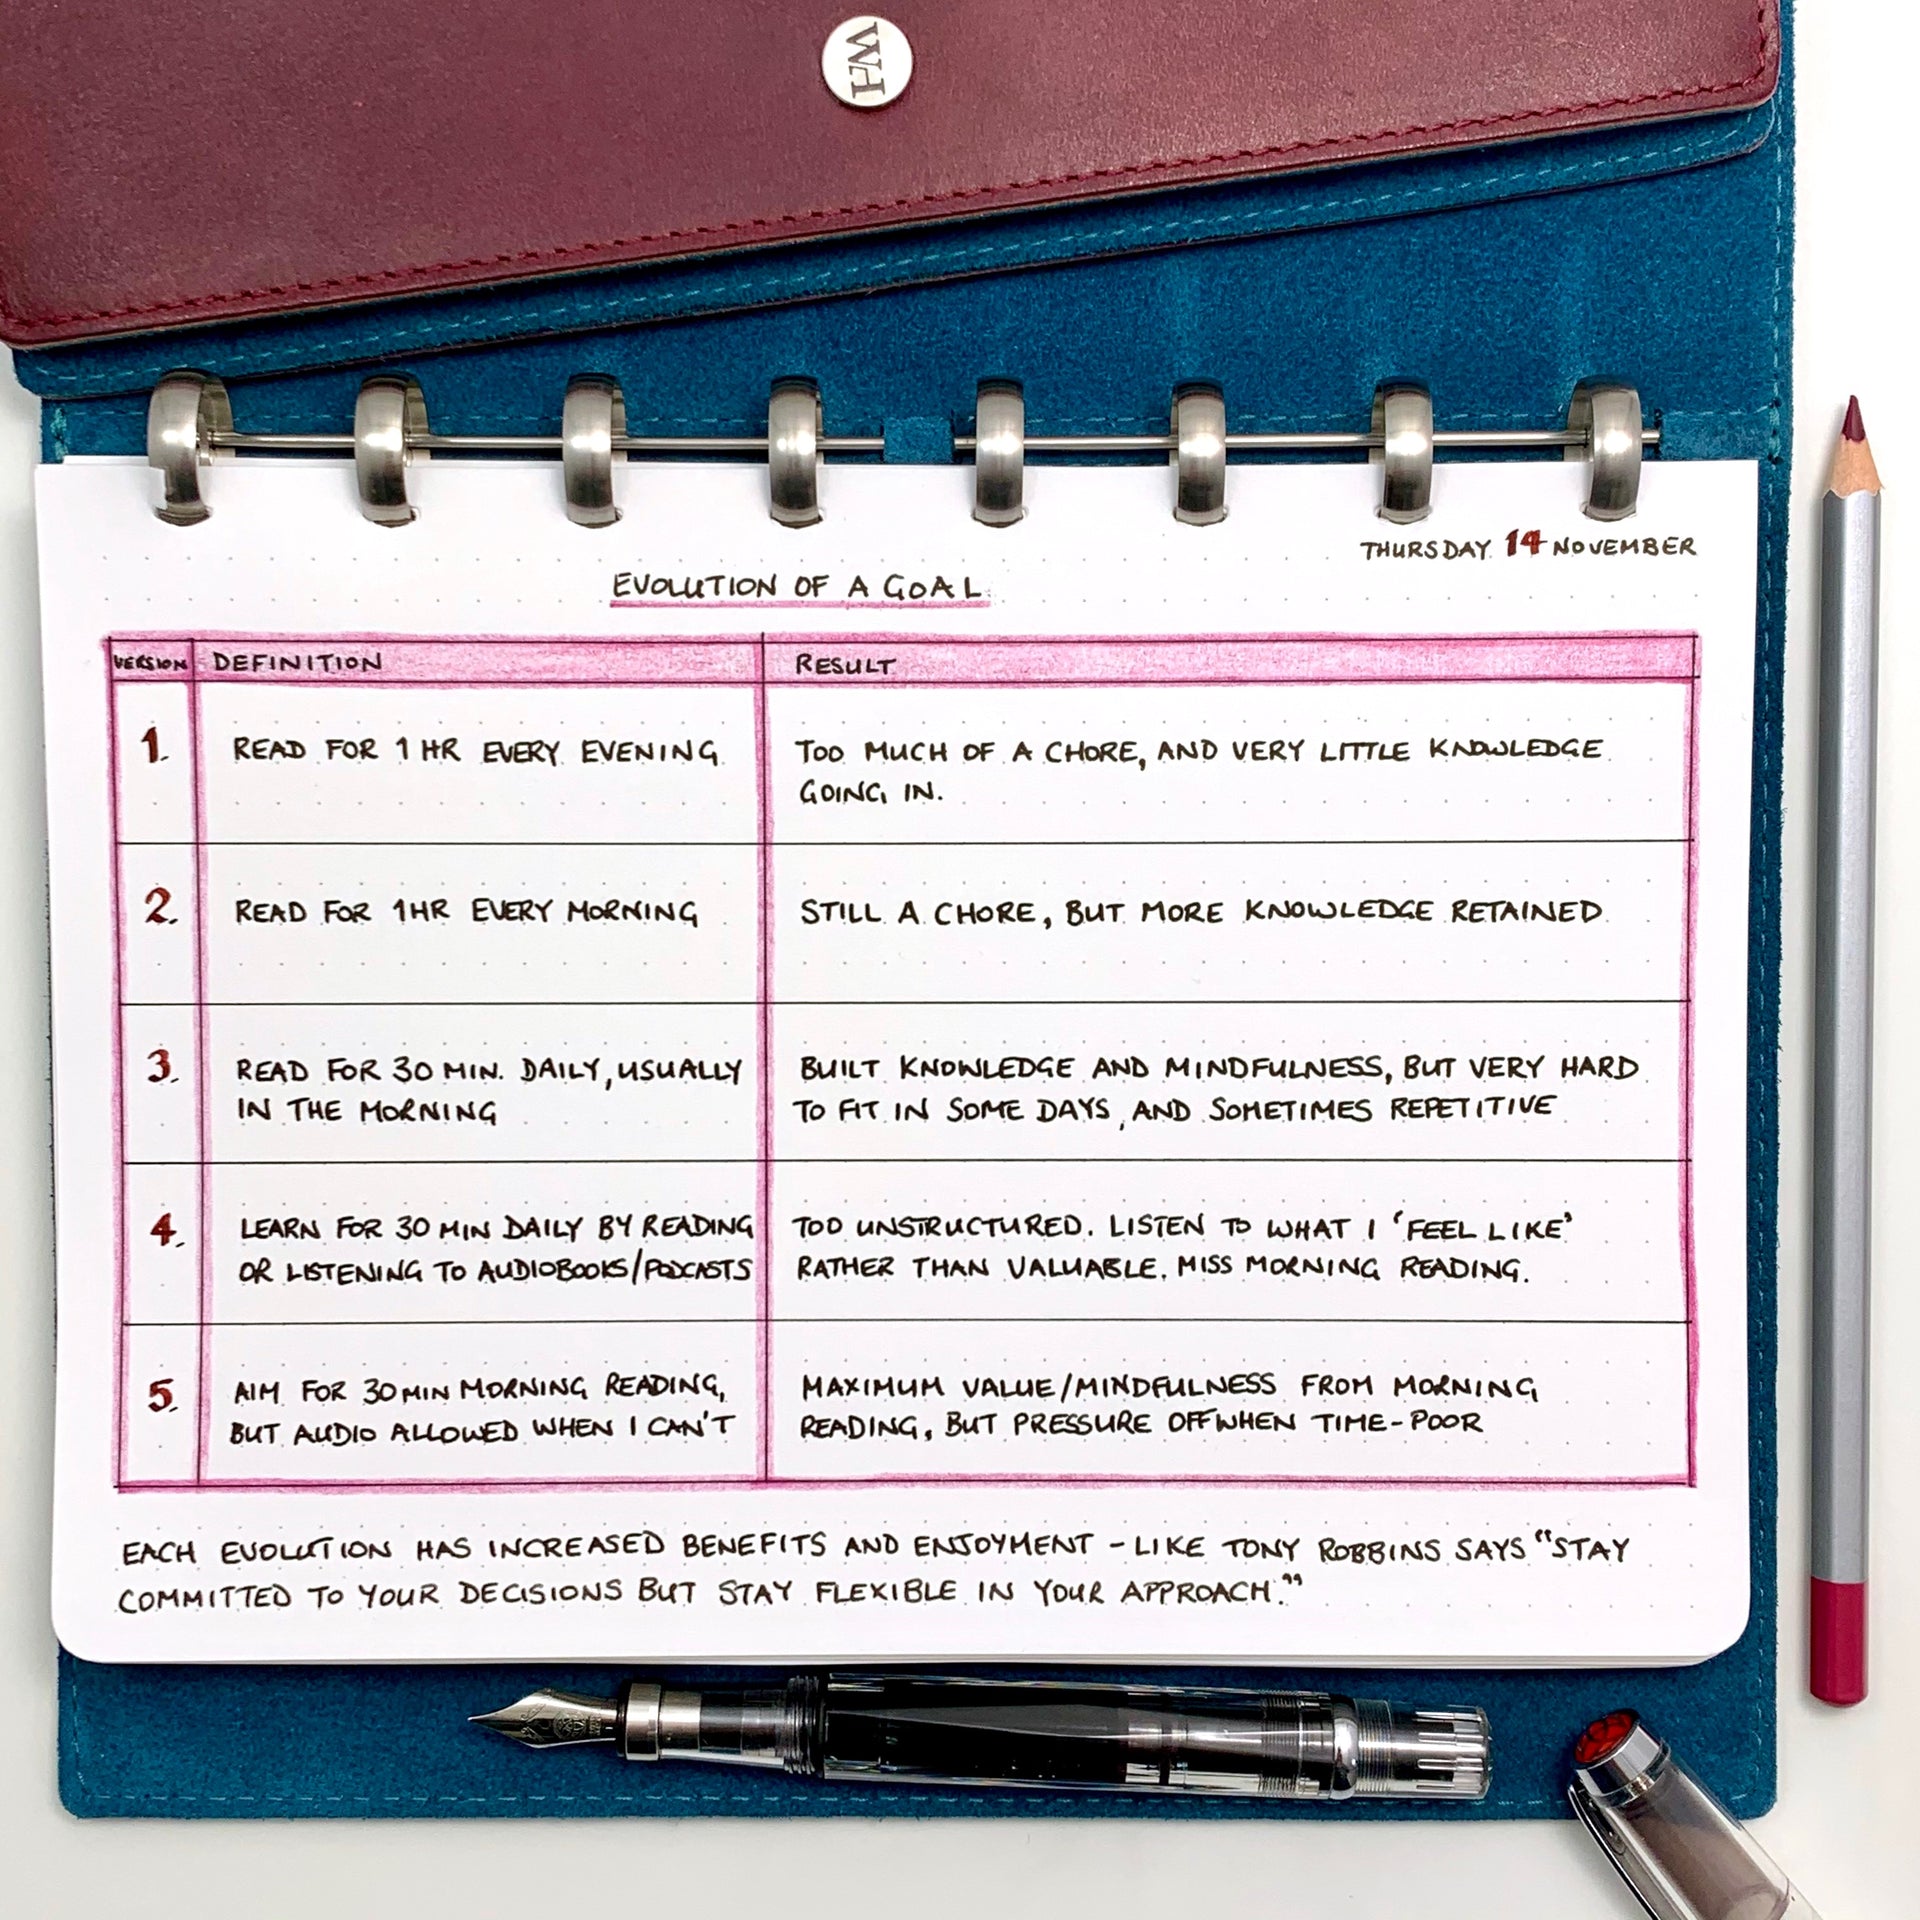 WH
THURSDAY 14 NOVEMBER
EVOLUTION OF A GOAL
VERSION DEFINITION RESULT
1. READ FOR 1 HR EVERY EVENING
TOO MUCH OF A CHORE, AND VERY LITTLE KNOWLEDGE
GOING IN.
2. READ FOR 1HR EVERY MORNING
STILL A CHORE, BUT MORE KNOWLEDGE RETAINED
3. READ FOR 30 MIN. DAILY, USUALLY
IN THE MORNING
BUILT KNOWLEDGE AND MINDFULNESS, BUT VERY HARD
TO FIT IN SOME DAYS, AND SOMETIMES REPETITIVE
4. LEARN FOR 30 MIN DAILY BY READING
OR LISTENING TO AUDIOBOOKS/PODCASTS
TOO UNSTRUCTURED. LISTEN TO WHAT I 'FEEL LIKE'
RATHER THAN VALUABLE. MISS MORNING READING.
5. AIM FOR 30 MIN MORNING READING,
BUT AUDIO ALLOWED WHEN I CAN'T
MAXIMUM VALUE/MINDFULNESS FROM MORNING
READING, BUT PRESSURE OFF WHEN TIME-POOR
EACH EVOLUTION HAS INCREASED BENEFITS AND ENJOYMENT - LIKE TONY ROBBINS SAYS "STAY
COMMITTED TO YOUR DECISIONS BUT STAY FLEXIBLE IN YOUR APPROACH."